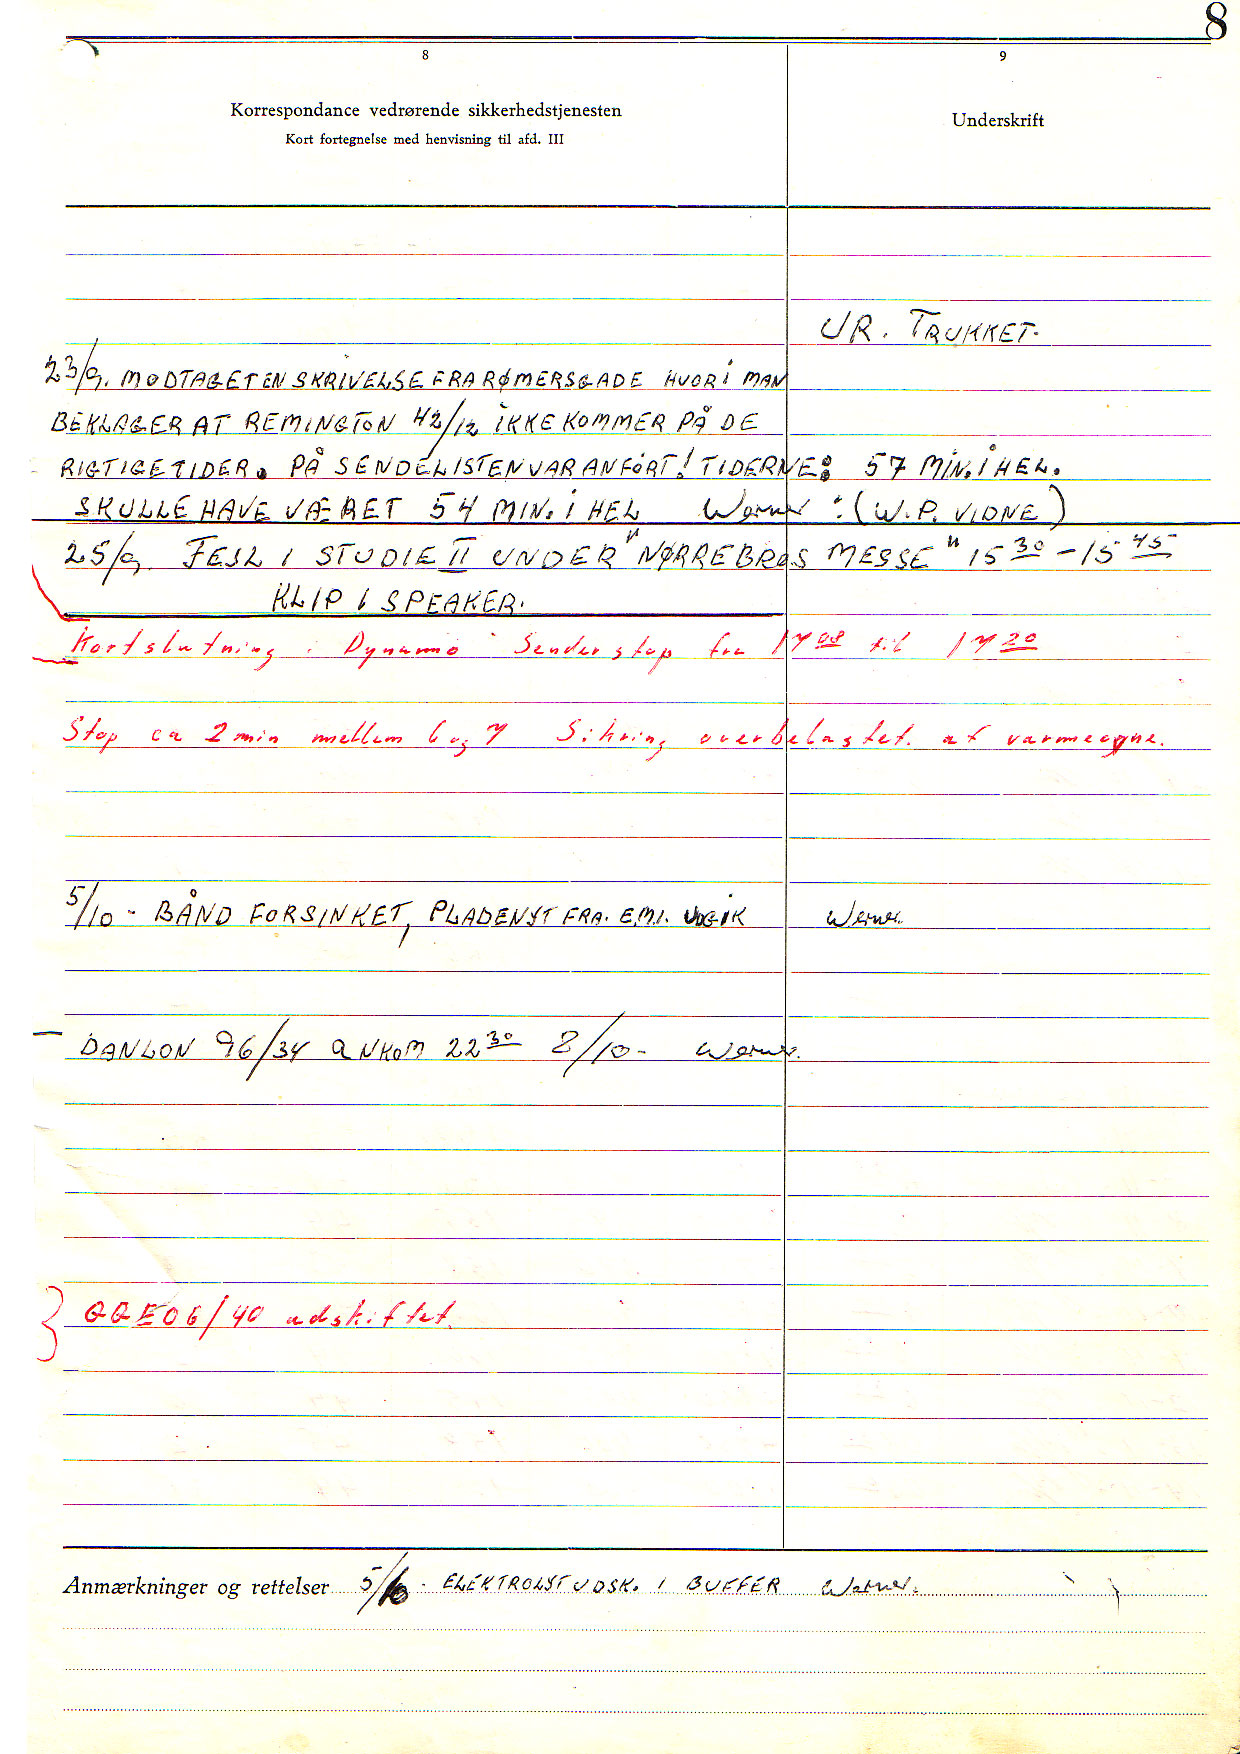 8
8
9
Korrespondance vedrørende sikkerhedstjenesten
Underskrift
Kort fortegnelse med henvisning til afd. III
UR. TRUKKET.
23/9. MODTAGET EN SKRIVELSE FRA RØMERSGADE HVORI MAN
BEKLAGER AT REMINGTON 42/12 IKKE KOMMER PÅ DE
RIGTIGE TIDER. PÅ SENDELISTEN VAR ANFØRT! TIDERNE: 57 MIN. I HEL.
SKULLE HAVE VÆRET 54 MIN. I HEL Werner :(W.P. VIDNE)
25/9 FEJL I STUDIE II UNDER "NØRREBROS MESSE" 15 30 - 15 45
KLIP I SPEAKER.
Kortslutning i Dynamo Senderstop fra 17 08 til 17 20
Stop ca 2 min mellem 6 og 7 Sikring overbelastet af varmeovne.
5/10 - BÅND FORSINKET, PLADENYT FRA. E.M.I. UDGIK Werner.
- DANLON 96/34 ANKOM 22 30 2/10 - Werner.
QQE06/40 udskiftet.
Anmærkninger og rettelser 5/10 - ELEKTROLYT UDSK. I BUFFER Werner.